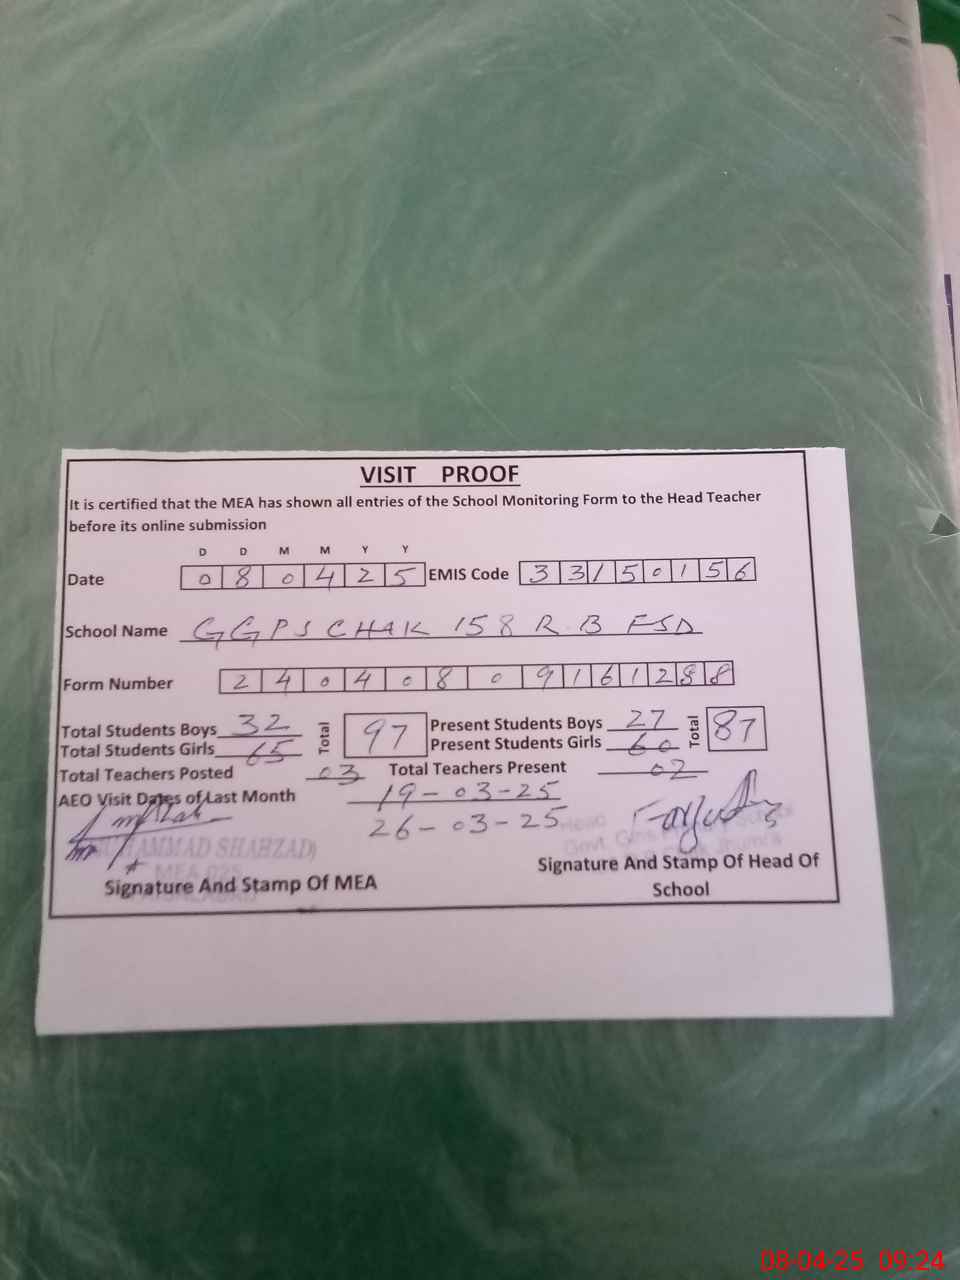 VISIT PROOF
It is certified that the MEA has shown all entries of the School Monitoring Form to the Head Teacher
before its online submission
D D M M Y Y
Date 0 8 0 4 2 5 EMIS Code 3 3 1 5 0 1 5 6
School Name GGPS CHAK 158 R.B FSD
Form Number 2 4 0 4 0 8 0 9 1 6 1 2 8 8
Total Students Boys 32 Total 97 Present Students Boys 27 Total 87
Total Students Girls 65 Present Students Girls 60
Total Teachers Posted 03 Total Teachers Present 02
AEO Visit Dates of Last Month 19-03-25
26-03-25
Head
Govt. Girls
MUHAMMAD SHAHZAD
MEA
Signature And Stamp Of MEA
Signature And Stamp Of Head Of
School
08-04-25 09:24